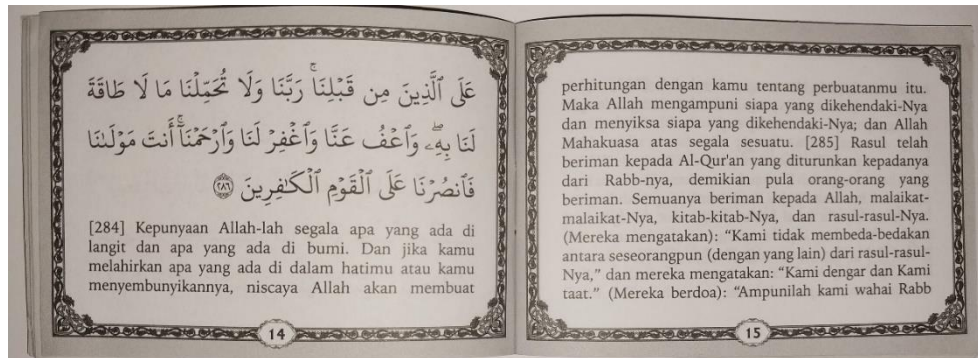 عَلَى ٱلَّذِينَ مِن قَبْلِنَا ۚ رَبَّنَا وَلَا تُحَمِّلْنَا مَا لَا طَاقَةَ
لَنَا بِهِۦ ۖ وَٱعْفُ عَنَّا وَٱغْفِرْ لَنَا وَٱرْحَمْنَآ ۚ أَنتَ مَوْلَىٰنَا
فَٱنصُرْنَا عَلَى ٱلْقَوْمِ ٱلْكَـٰفِرِينَ ٢٨٦
[284] Kepunyaan Allah-lah segala apa yang ada di
langit dan apa yang ada di bumi. Dan jika kamu
melahirkan apa yang ada di dalam hatimu atau kamu
menyembunyikannya, niscaya Allah akan membuat
14
perhitungan dengan kamu tentang perbuatanmu itu.
Maka Allah mengampuni siapa yang dikehendaki-Nya
dan menyiksa siapa yang dikehendaki-Nya; dan Allah
Mahakuasa atas segala sesuatu. [285] Rasul telah
beriman kepada Al-Qur'an yang diturunkan kepadanya
dari Rabb-nya, demikian pula orang-orang yang
beriman. Semuanya beriman kepada Allah, malaikat-
malaikat-Nya, kitab-kitab-Nya, dan rasul-rasul-Nya.
(Mereka mengatakan): “Kami tidak membeda-bedakan
antara seseorangpun (dengan yang lain) dari rasul-rasul-
Nya,” dan mereka mengatakan: “Kami dengar dan Kami
taat.” (Mereka berdoa): “Ampunilah kami wahai Rabb
15